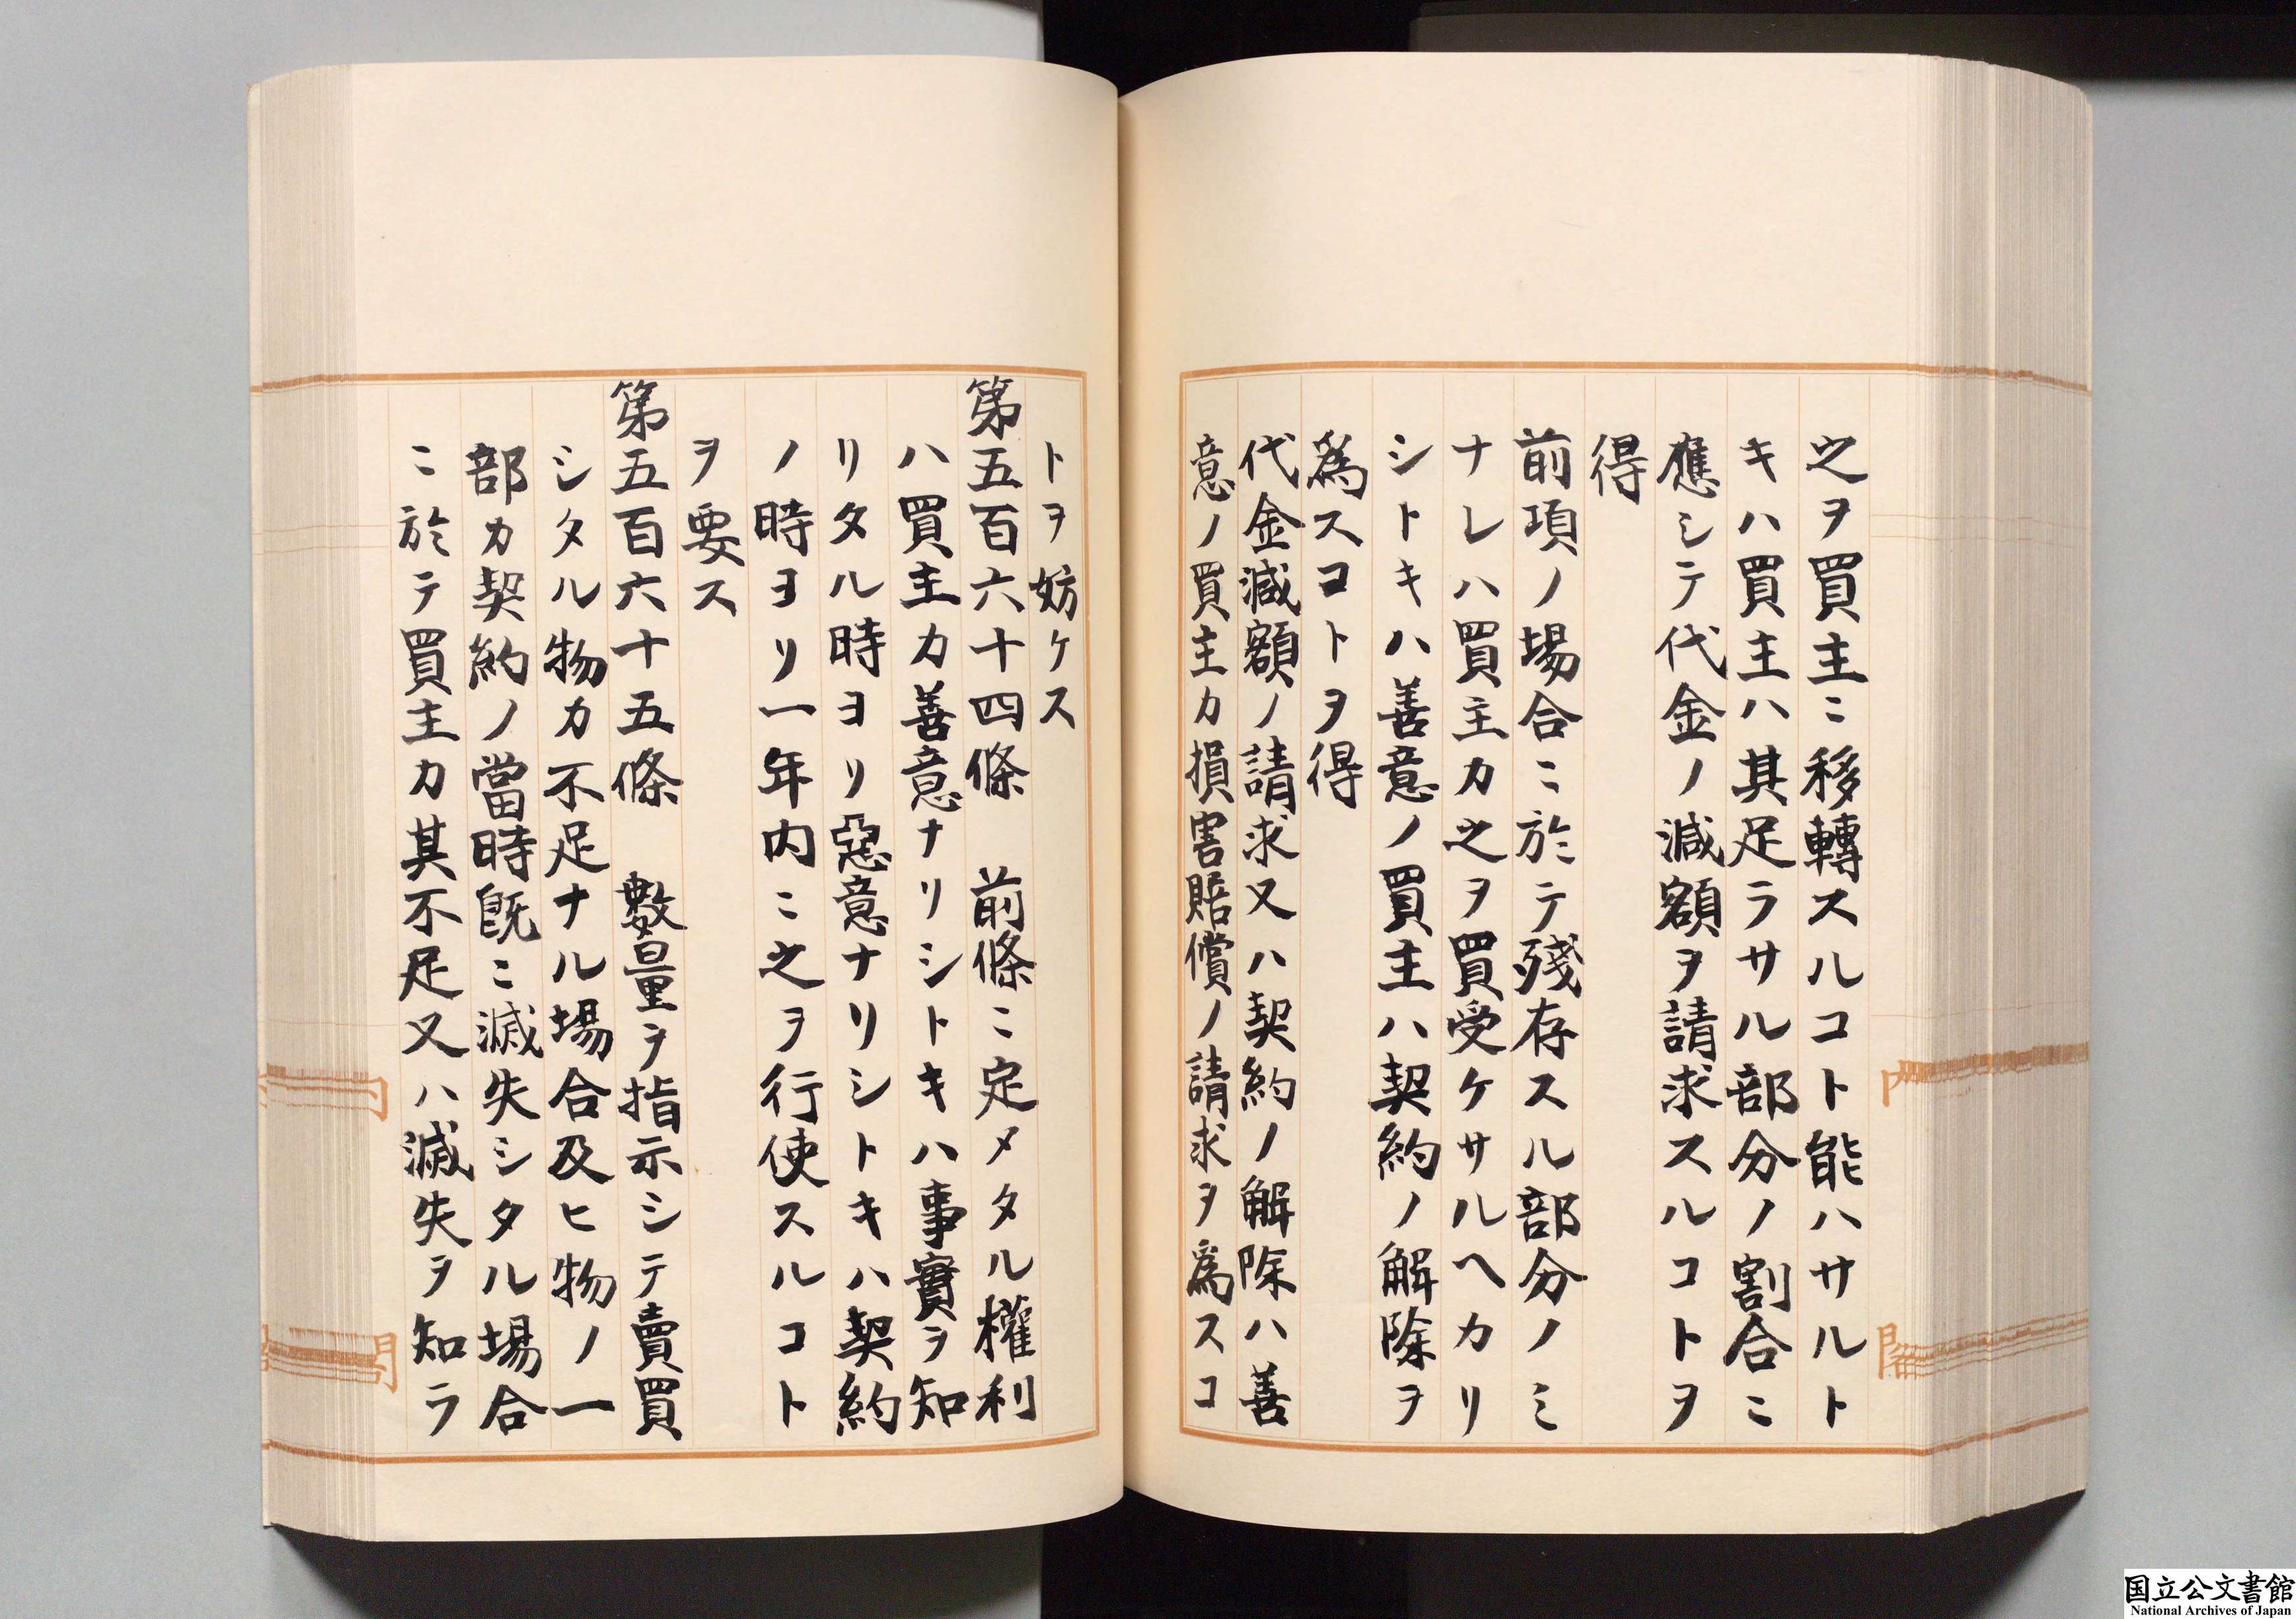 之ヲ買主ニ移轉スルコト能ハサルト
キハ買主ハ其足ラサル部分ノ割合ニ
應シテ代金ノ減額ヲ請求スルコトヲ
得
前項ノ場合ニ於テ殘存スル部分ノミ
ナレハ買主カ之ヲ買受ケサルヘカリ
シトキハ善意ノ買主ハ契約ノ解除ヲ
爲スコトヲ得
代金減額ノ請求又ハ契約ノ解除ハ善
意ノ買主カ損害賠償ノ請求ヲ爲スコ
トヲ妨ケス
第五百六十四條 前條ニ定メタル權利
ハ買主カ善意ナリシトキハ事實ヲ知
リタル時ヨリ惡意ナリシトキハ契約
ノ時ヨリ一年內ニ之ヲ行使スルコト
ヲ要ス
第五百六十五條 數量ヲ指示シテ賣買
シタル物カ不足ナル場合及ヒ物ノ一
部カ契約ノ當時既ニ滅失シタル場合
ニ於テ買主カ其不足又ハ滅失ヲ知ラ
内
閣
国立公文書館
National Archives of Japan